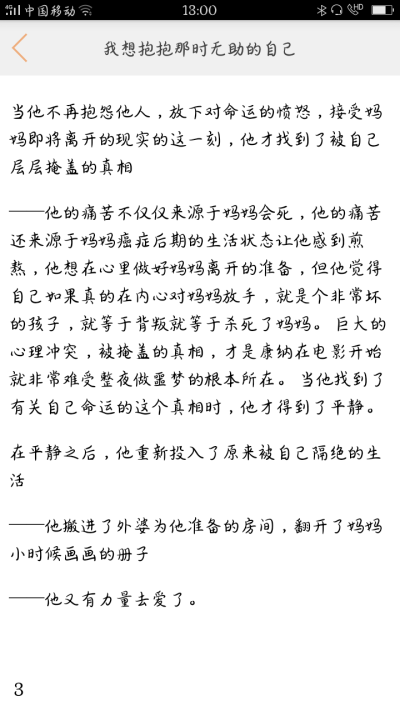 4G 中国移动 13:00 HD
我想抱抱那时无助的自己
当他不再抱怨他人，放下对命运的愤怒，接受妈
妈即将离开的现实的这一刻，他才找到了被自己
层层掩盖的真相
——他的痛苦不仅仅来源于妈妈会死，他的痛苦
还来源于妈妈癌症后期的生活状态让他感到煎
熬，他想在心里做好妈妈离开的准备，但他觉得
自己如果真的在内心对妈妈放手，就是个非常坏
的孩子，就等于背叛就等于杀死了妈妈。巨大的
心理冲突，被掩盖的真相，才是康纳在电影开始
就非常难受整夜做噩梦的根本所在。当他找到了
有关自己命运的这个真相时，他才得到了平静。
在平静之后，他重新投入了原来被自己隔绝的生
活
——他搬进了外婆为他准备的房间，翻开了妈妈
小时候画画的册子
——他又有力量去爱了。
3